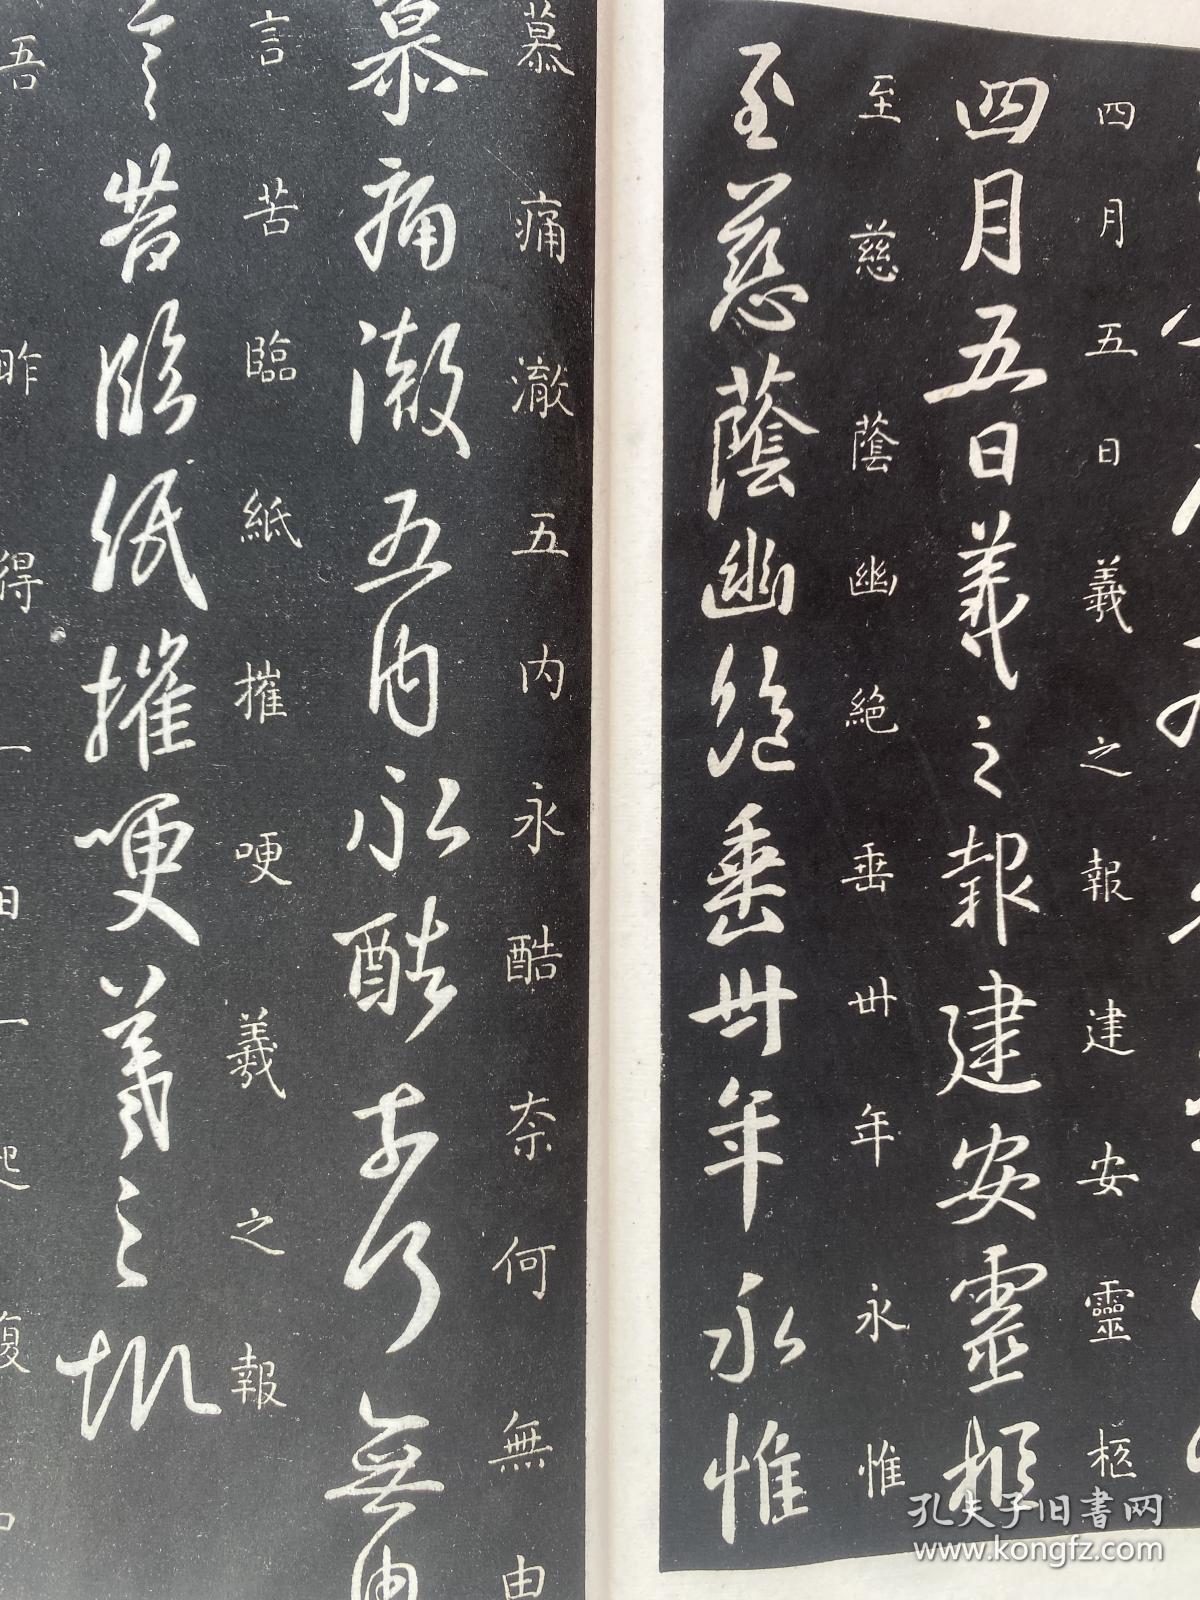 四月五日羲之報建安靈柩
四月五日羲之報建安靈柩
至慈蔭幽絕垂卅年永惟
至慈蔭幽絕垂卅年永惟
慕痛澈五内永酷奈何無由
慕痛澈五内永酷奈何無由
言苦臨紙摧哽羲之報
言苦臨紙摧哽羲之報
吾昨得一日一起復
孔夫子旧书网
www.kongfz.com